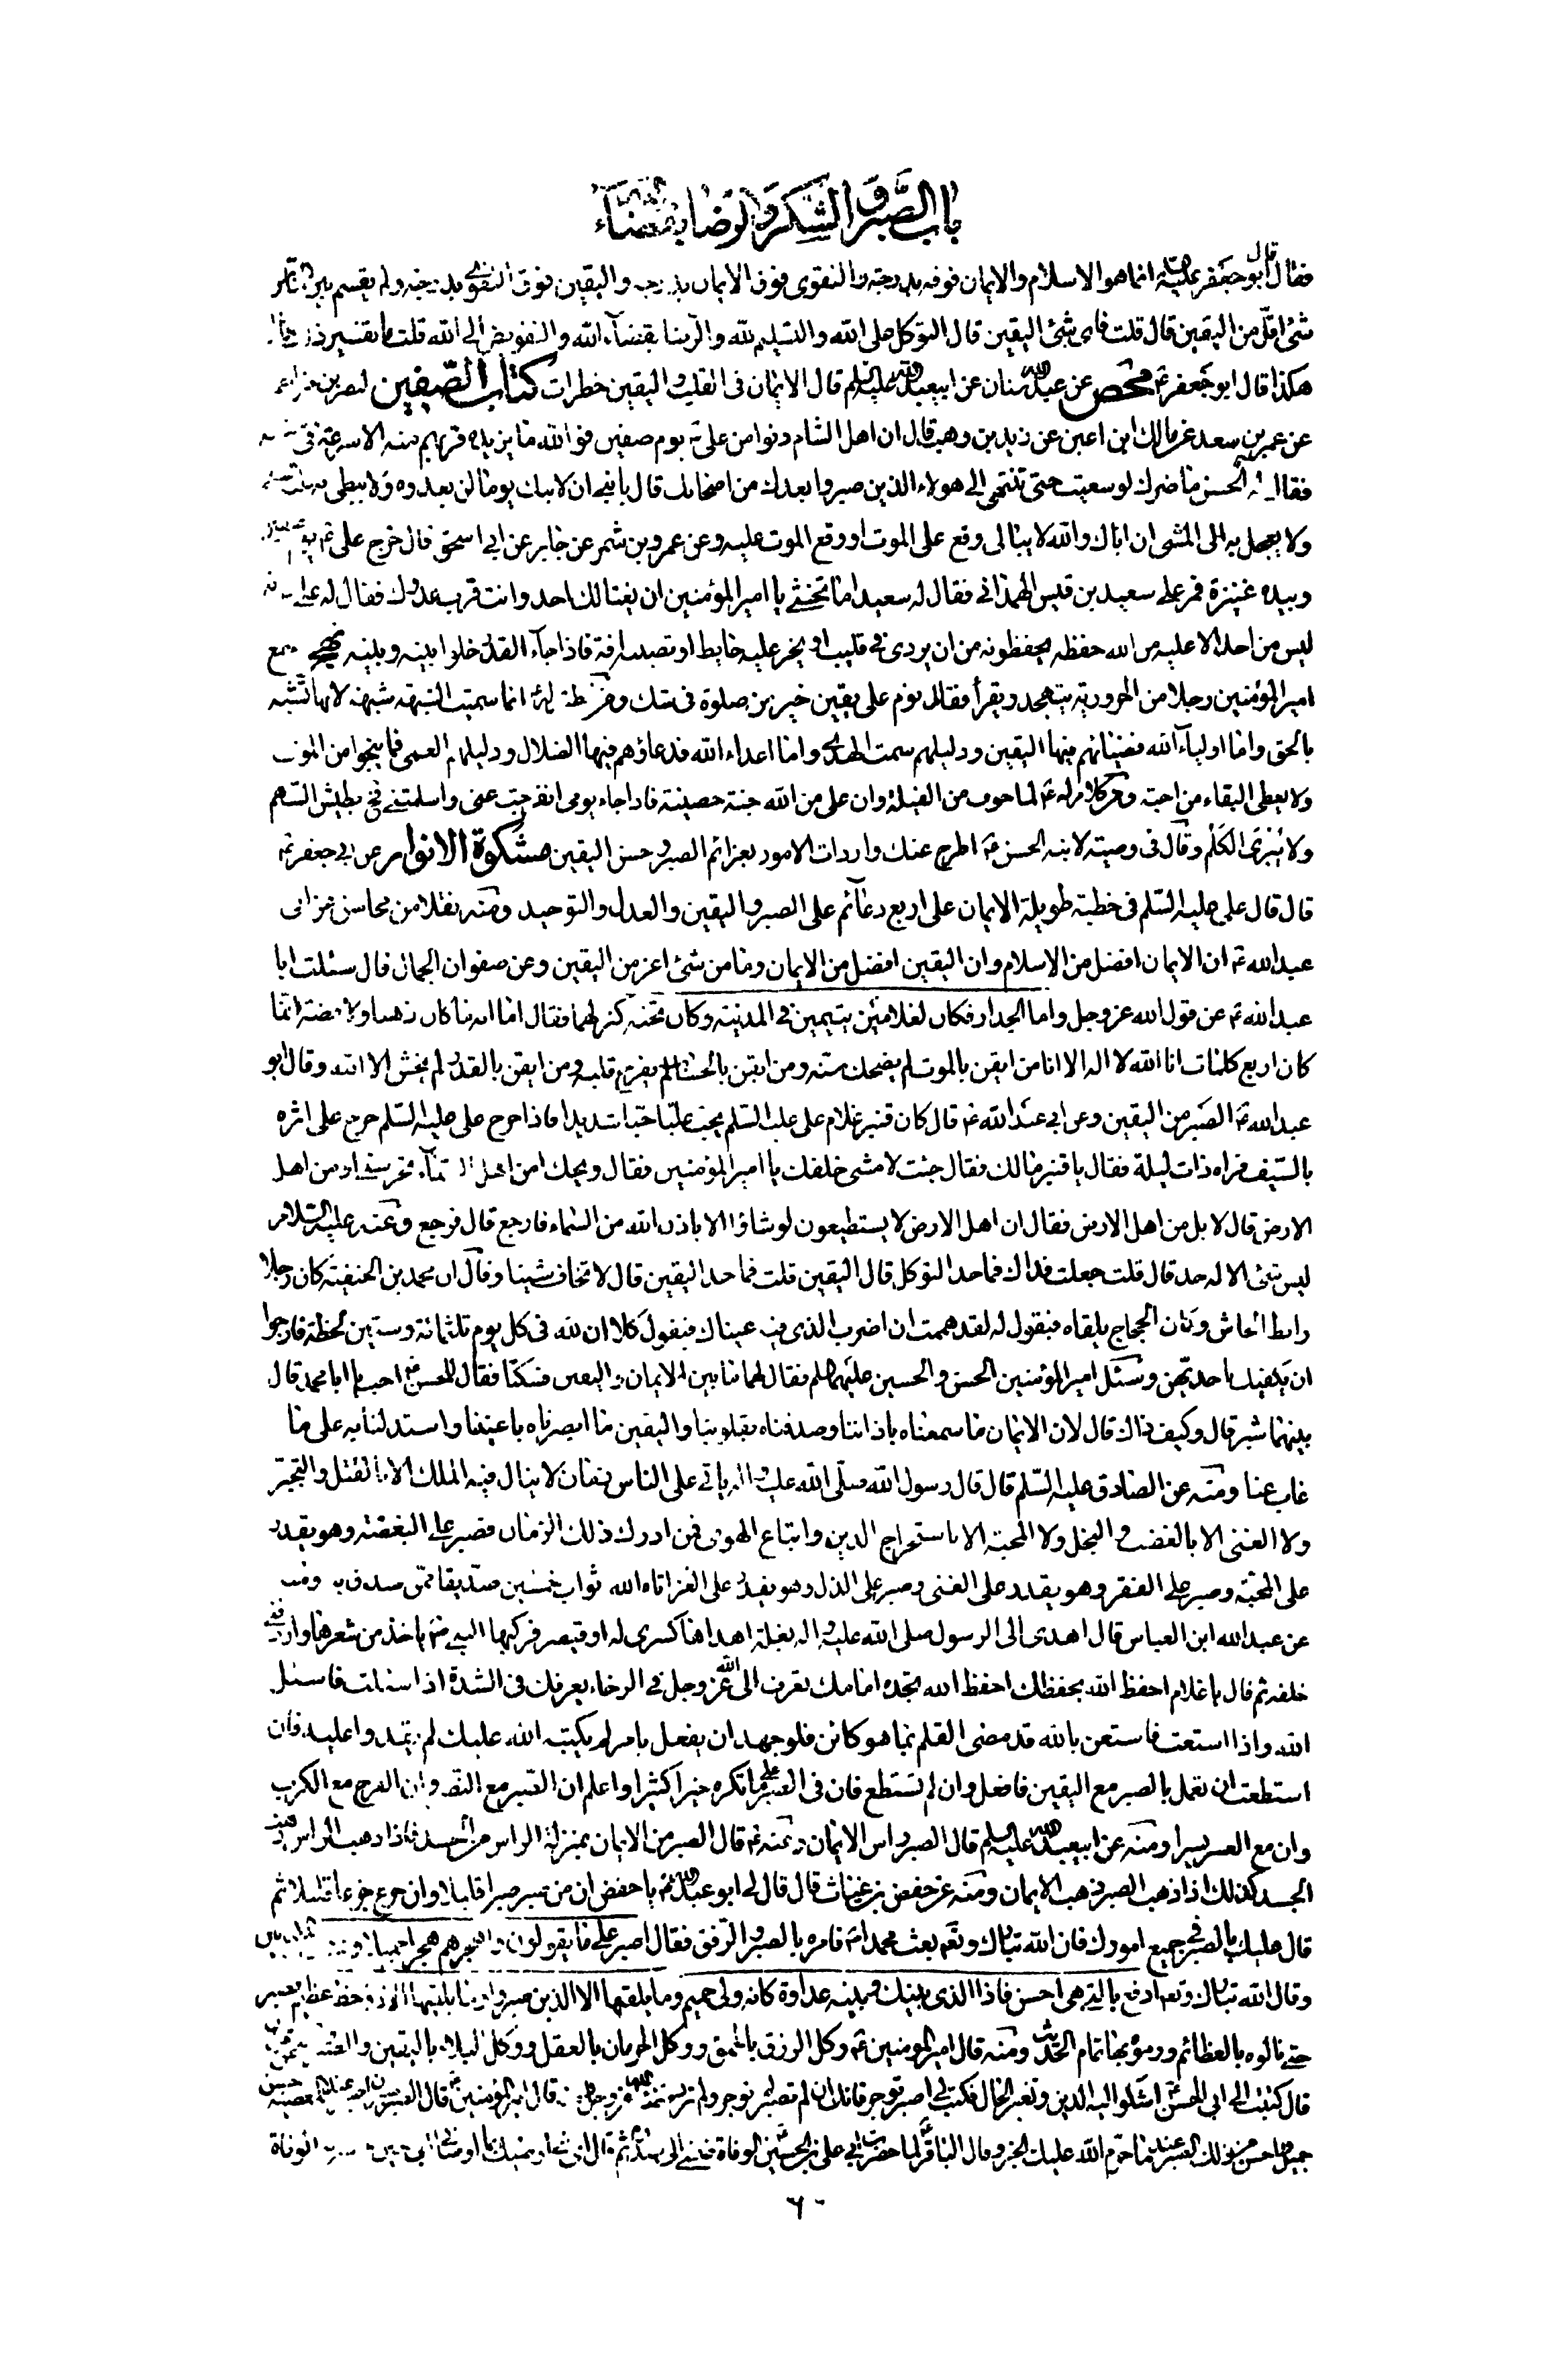 باب الصبر والشكر والرضا بقضاء
فقال قال ابو جعفر عليه انما هو الاسلام والايمان فوقه بدرجة والتقوى فوق الايمان بدرجة واليقين فوق التقوى بدرجة ولم يقسم بين
شئ اقل من اليقين قال قلت فاى شئ اليقين قال التوكل على الله والتسليم لله والرضا بقضاء الله والتفويض الى الله قلت ما تفسير ذلك
هكذا قال ابو جعفر ع محص عن عبد الله بن سنان عن ابيعبد الله عليه السلم قال الايمان فى القلب واليقين خطرات كتاب الصفين لنصر بن مزاحم
عن عمر بن سعد عن مالك ابن اعين عن زيد بن وهب قال ان اهل الشام دنوا من على ع يوم صفين فوالله ما يزيده قربهم منه الا سرعة فى
فقال له الحسن ما ضرك لو سعيت حتى تنتهى الى هولاء الذين صبروا بعدك من اصحابك قال يا بنى ان لابيك يوما لن يعدوه ولا يبطى به
ولا يعجل به الى المشى ان اباك والله لا يبالى وقع على الموت او وقع الموت عليه وعن عمرو بن شمر عن جابر عن ابى اسحق قال خرج على ع
وبيده عنيزة فمر على سعيد بن قيس الهمدانى فقال له سعيد اما تخشى يا امير المؤمنين ان يغتالك احد وانت قرب عدوك فقال له على
ليس من احد الا عليه من الله حفظه يحفظونه من ان يردى فى قليب او يخر عليه حايط او تصيبه افة فاذا جاء القدر خلوا بينه وبينه نهج سمع
امير المؤمنين رجلا من الحرورية يتهجد ويقرأ فقال نوم على يقين خير من صلوة فى شك و انما سميت الشبهة شبهة لانها تشبه
بالحق واما اولياء الله فضيائهم فيها اليقين ودليلهم سمت الهدى واما اعداء الله فدعاؤهم فيها الضلال ودليلهم العمى فما ينجوا من الموت
ولا يعطى البقاء من احبه ومن كلام له ع لما خوف من الغيلة وان على من الله جنة حصينة فاذا جاء يومى انفرجت عنى واسلمتنى فح يطيش السهم
ولا يبرئ الكلم وقال فى وصيته لابنه الحسن ع اطرح عنك واردات الامور بعزائم الصبر وحسن اليقين مشكوة الانوار عن ابى جعفر ع
قال قال على عليه السلم فى خطبة طويلة الايمان على اربع دعائم على الصبر واليقين والعدل والتوحيد ومنه نقلا من محاسن عن ابى
عبد الله ع ان الايمان افضل من الاسلام وان اليقين افضل من الايمان وما من شئ اعز من اليقين وعن صفوان الجمال قال سئلت ابا
عبد الله ع عن قول الله عز وجل واما الجدار فكان لغلامين يتيمين فى المدينة وكان تحته كنز لهما فقال اما انه ما كان ذهبا ولا فضة انما
كان اربع كلمات انا الله لا اله الا انا من ايقن بالموت لم يضحك سنه ومن ايقن بالحساب لم يفرح قلبه ومن ايقن بالقدر لم يخش الا الله وقال ابو
عبد الله ع الصبر من اليقين وعن ابى عبد الله ع قال كان قنبر غلام على عليه السلم يحب عليا حبا شديدا فاذا خرج على عليه السلم خرج على اثره
بالسيف فراه ذات ليلة فقال يا قنبر مالك فقال جئت لامشى خلفك يا امير المؤمنين فقال ويحك امن اهل السماء تحرسنى او من اهل
الارض قال لا بل من اهل الارض فقال ان اهل الارض لا يستطيعون لو شاؤا الا باذن الله من السماء فارجع قال فرجع وعنه عليه السلام
ليس شئ الا له حد قال قلت جعلت فداك فما حد التوكل قال اليقين قلت فما حد اليقين قال لا تخاف شيئا وقال ان محمد بن الحنفية كان رجلا
رابط الجاش وكان الحجاج يلقاه فيقول له لقد هممت ان اضرب الذى فيه عيناك فيقول كلا ان لله فى كل يوم ثلثمائة وستين لحظة فارجوا
ان يكفيك باحديهن وسئل امير المؤمنين الحسن والحسين عليهما السلم فقال لهما ما بين الايمان واليقين فسكتا فقال للحسن ع اجب يا ابا محمد قال
بينهما شبر قال وكيف ذاك قال لان الايمان ما سمعناه باذاننا وصدقناه بقلوبنا واليقين ما ابصرناه باعيننا واستدللنا به على ما
غاب عنا ومنه عن الصادق عليه السلم قال قال رسول الله صلى الله عليه واله ياتى على الناس زمان لا ينال فيه الملك الا بالقتل والتجبر
ولا الغنى الا بالغضب والبخل ولا المحبة الا باستخراج الدين واتباع الهوى فمن ادرك ذلك الزمان فصبر على البغضة وهو يقدر
على المحبة وصبر على الفقر وهو يقدر على الغنى وصبر على الذل وهو يقدر على العز اتاه الله ثواب خمسين صديقا ممن صدق به ومنه
عن عبد الله ابن العباس قال اهدى الى الرسول صلى الله عليه واله بغلة اهداها كسرى له او قيصر فركبها النبى ع فاخذ من شعرها واردفنى
خلفه ثم قال يا غلام احفظ الله يحفظك احفظ الله تجده امامك تعرف الى الله عز وجل فى الرخاء يعرفك فى الشدة اذا سئلت فاسئل
الله واذا استعنت فاستعن بالله قد مضى القلم بما هو كائن فلو جهد ان يفعل بامر لم يكتبه الله عليك لم يقدروا عليه فان
استطعت ان تعمل بالصبر مع اليقين فافعل وان لم تستطع فان فى الصبر على ما تكره خيرا كثيرا واعلم ان الصبر مع النصر وان الفرج مع الكرب
وان مع العسر يسرا ومنه عن ابيعبد الله عليه السلم قال الصبر راس الايمان وعنه ع قال الصبر من الايمان بمنزلة الراس من الجسد فاذا ذهب الراس ذهب
الجسد كذلك اذا ذهب الصبر ذهب الايمان ومنه عن حفص بن غياث قال قال لى ابو عبد الله ع يا حفص ان من صبر صبر قليلا وان جزع جزع قليلا ثم
قال عليك بالصبر فى جميع امورك فان الله تبارك وتعالى بعث محمدا ص فامره بالصبر والرفق فقال اصبر على ما يقولون واهجرهم هجرا جميلا
وقال الله تبارك وتعالى ادفع بالتى هى احسن فاذا الذى بينك وبينه عداوة كانه ولى حميم وما يلقيها الا الذين صبروا وما يلقيها الا ذو حظ عظيم فصبر
حتى نالوه بالعظائم ورموه بها تمام الحديث ومنه قال امير المومنين ع وكل الرزق بالحمق ووكل الحرمان بالعقل ووكل البلاء باليقين والصبر
قال كتبت الى ابى الحسن ع اشكوا اليه الدين وتغير الحال فكتب لى اصبر توجر فانك ان لم تصبر لم توجر ولم ترد قضاء الله عز وجل قال امير المؤمنين ع قال الصبر صبران صبر عند المصيبة حسن
جميل واحسن من ذلك الصبر عند ما حرم الله عليك الخبر وقال الباقر ع لما حضرت ابى على بن الحسين الوفاة ضمنى الى صدره ثم قال اى بنى اوصيك بما اوصانى ابى حين الوفاة
٦٠